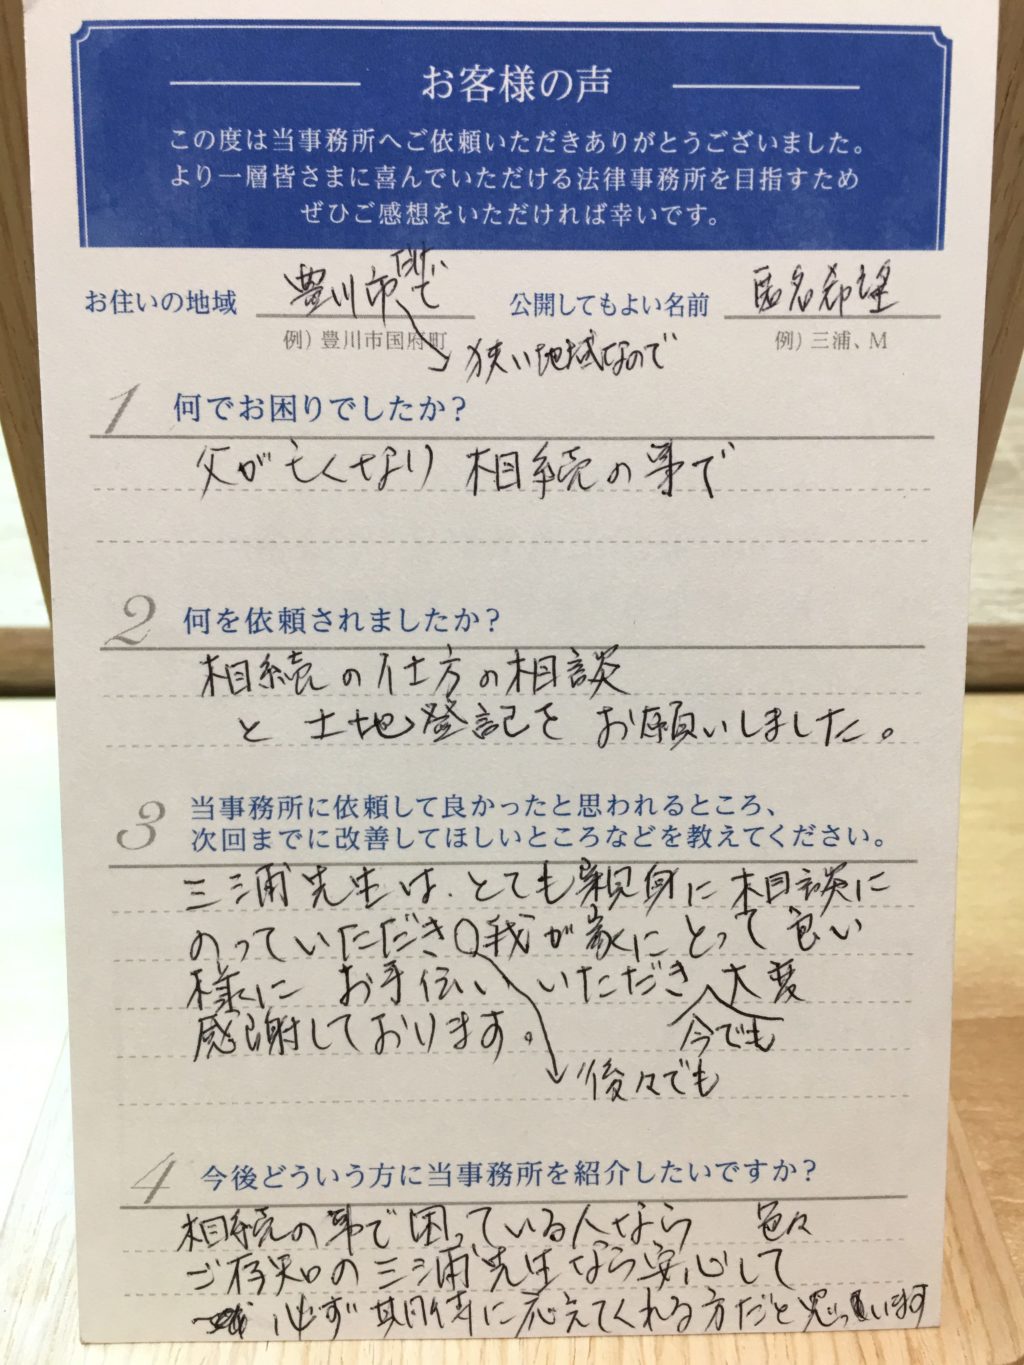 お客様の声
この度は当事務所へご依頼いただきありがとうございました。
より一層皆さまに喜んでいただける法律事務所を目指すため
ぜひご感想をいただければ幸いです。
お住いの地域 豊川市 で 公開してもよい名前 匿名希望
例）豊川市国府町 例）三浦、M
狭い地域なので
1 何でお困りでしたか？
父が亡くなり 相続の事で
2 何を依頼されましたか？
相続の仕方の相談
と 土地登記を お願いしました。
3 当事務所に依頼して良かったと思われるところ、
次回までに改善してほしいところなどを教えてください。
三浦先生は、とても親身に相談に
のっていただき 我が家にとって良い
様に お手伝い いただき 大変
今でも
感謝しております。
後々でも
4 今後どういう方に当事務所を紹介したいですか？
相続の事で困っている人なら 色々
ご存知の三浦先生なら安心して
必ず期待に応えてくれる方だと思っています